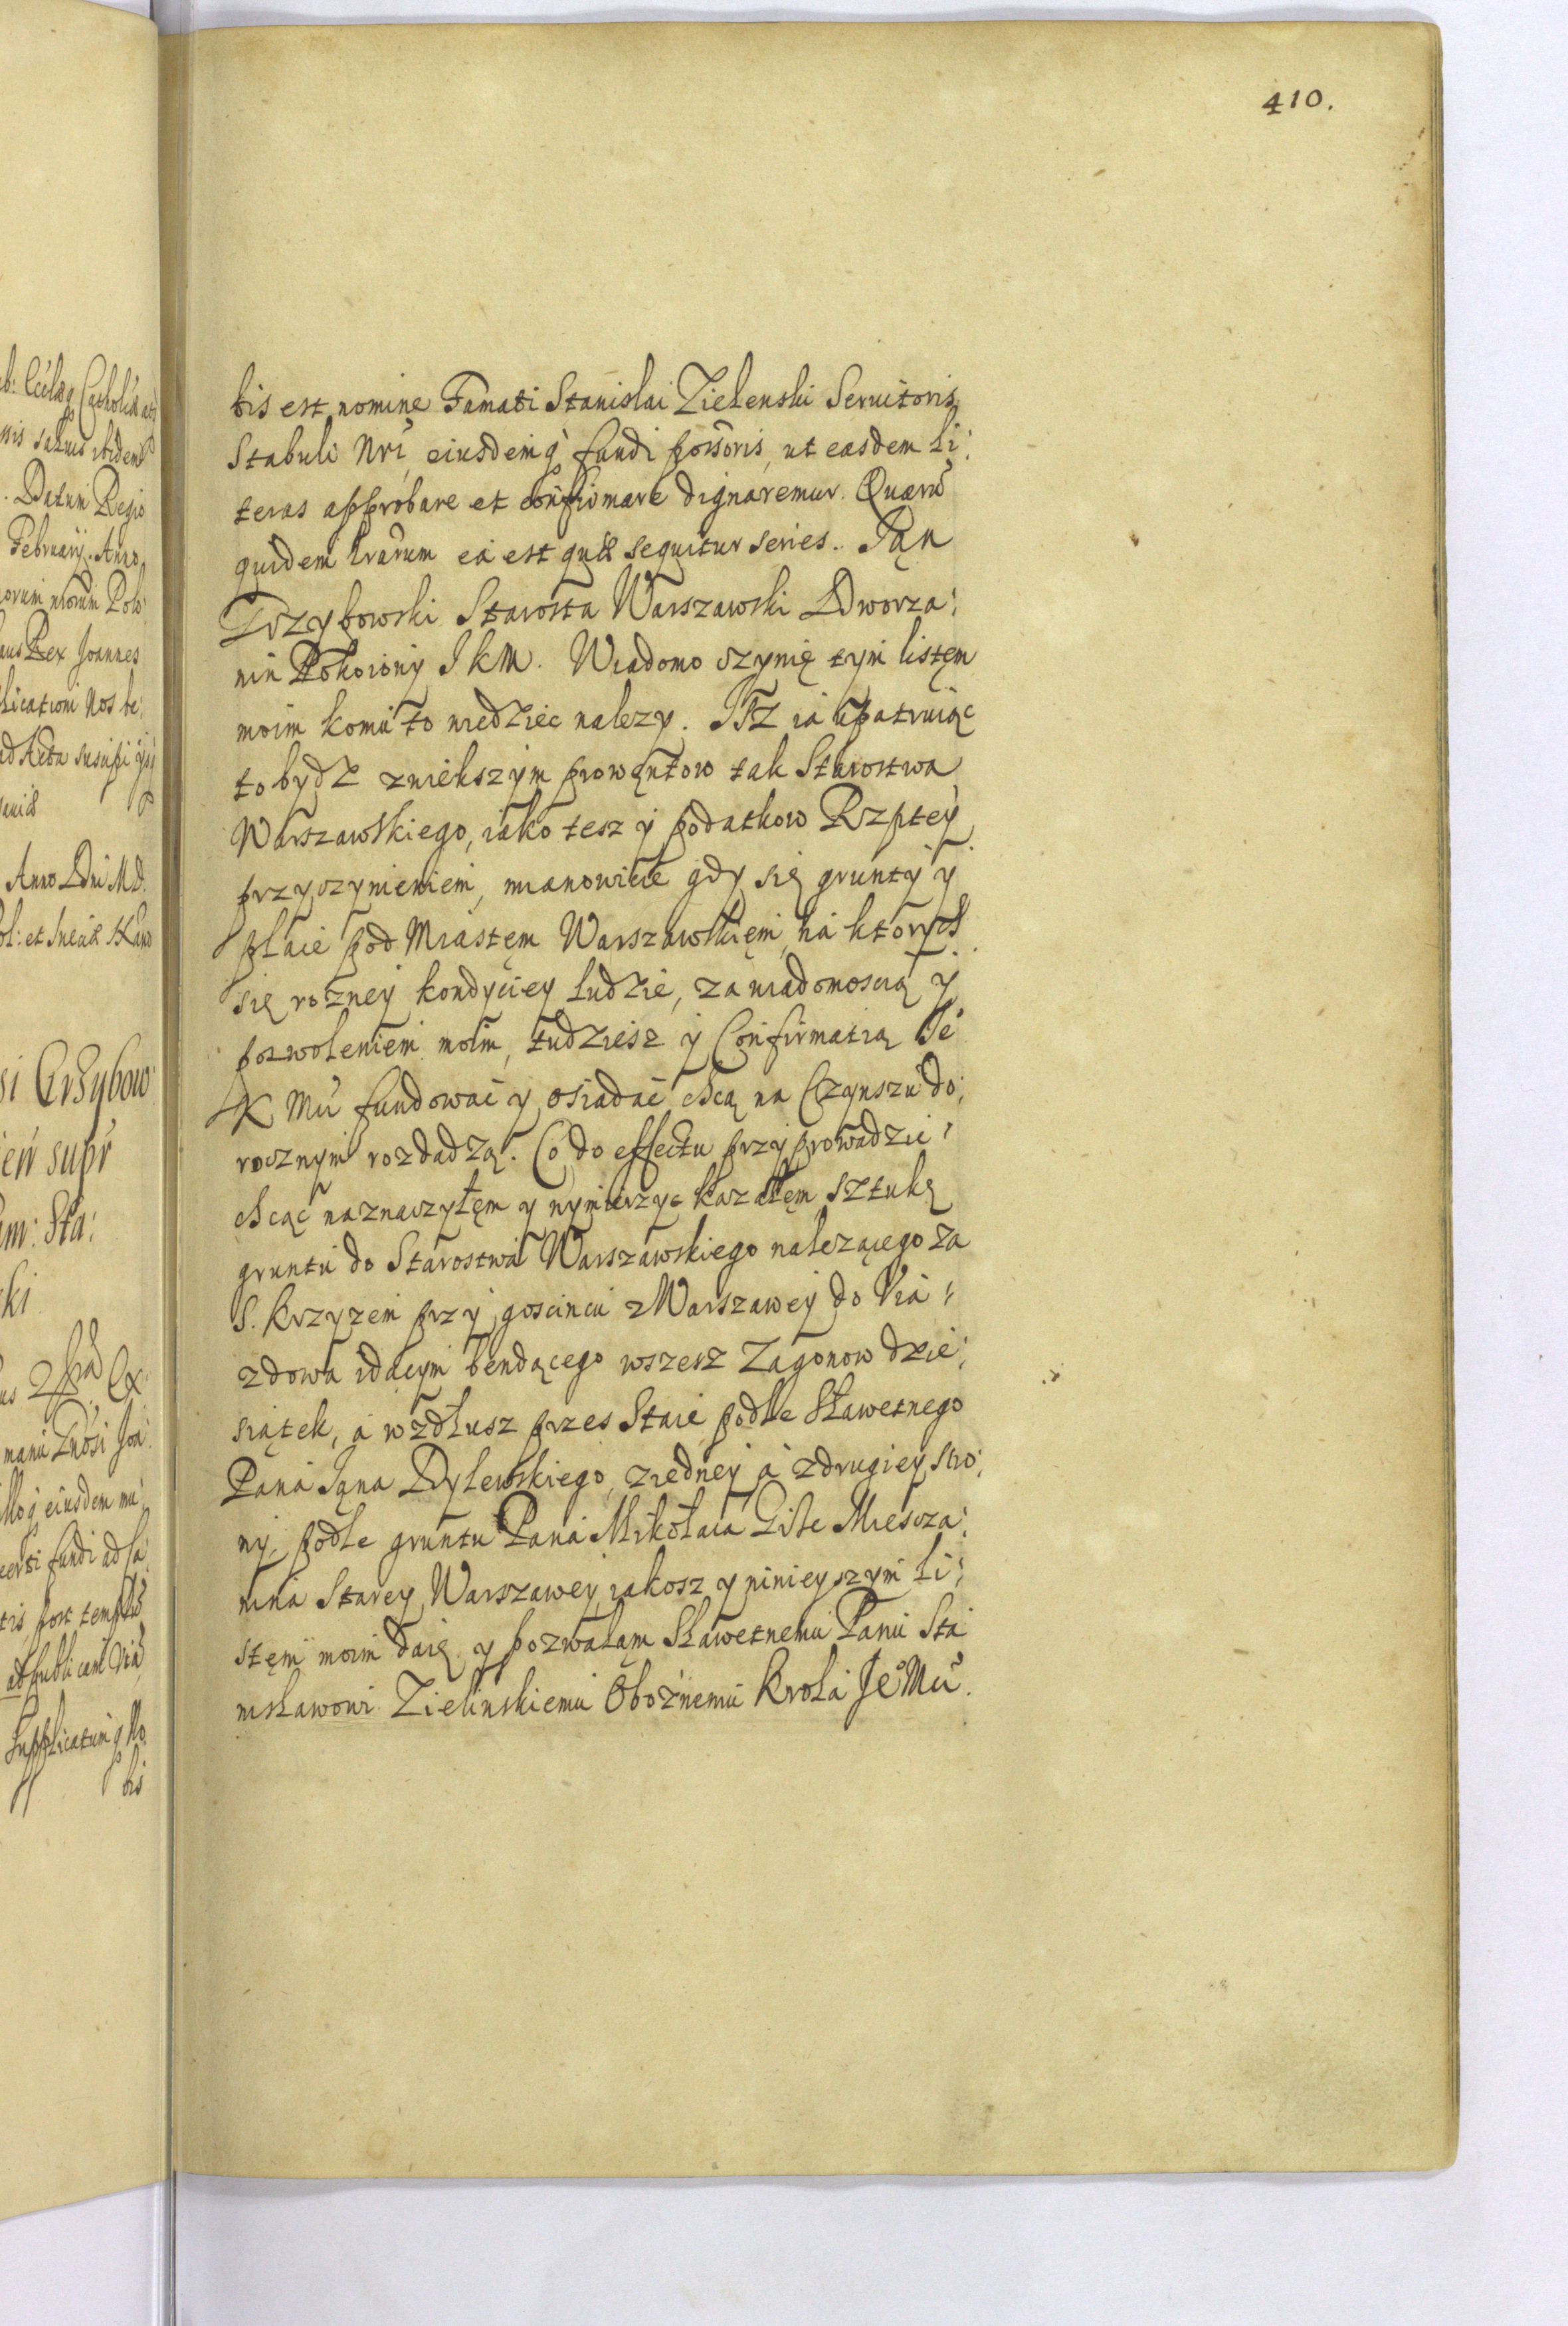 410.
bis est nomine Famati Stanislai Zielenski Seruitoris
Stabuli Nri, eiusdemq fundi possoris, ut easdem li:
teras approbare et confirmare dignaremur. Quarũ
quidem lrarum ea est quæ sequitur series. Ian
Grzybowski Starosta Warszawski Dworza:
nin Pokoiowy I K M. Wiadomo czynię tym listęm
moim komu to wiedziec nalezy. ISZ ia upatruiąc
to bydz zwiekszym prowęntow tak Starostwa
Warszawskiego, iako tesz y podatkow Rzptey
przyczynieniem, mianowicie gdy się grunty y
place pod Miastęm Warszawskięm, na ktorych
się rozney kondyciey ludzie, za wiadomoscią y
pozwoleniem moim, tudziesz y Confirmatią Je
K Mci fundować y osiadać chcą na Czynszu do:
rocznym rozdadzą. Co do effectu przyprowadzic:
chcąc naznaczyłęm y wymierzyc kazałęm sztukę
gruntu do Starostwa Warszawskiego nalezącego za
S. Krzyzem przy goscincu z Warszawey do Uia:
zdowa idącym bendącego wszesz Zagonow dzie:
siątek, a wzdłusz przes Staie podle Sławetnego
Pana Iana Dylewskiego, ziedney a zdrugiey stro:
ny podle gruntu Pana Mikołaia Gise Miescza:
nina Starey Warszawey, iakosz y ninieyszym li:
stęm moim daię y pozwalam Sławetnemu Panu Sta
nisławowi Zielinskiemu Oboznemu Krola Je Mci
b:
Catholicæ
salus ibidem
Datum Regio
February. Anno
Polo:
Rex Joannes
Nos be:
ad Acta
Anno Dni MD.
et Sueciæ
Grzybow
supr
Sta:
ki
eiusdem
fundi ad
post templũ
publicam viã
Supplicatumq No.
bis